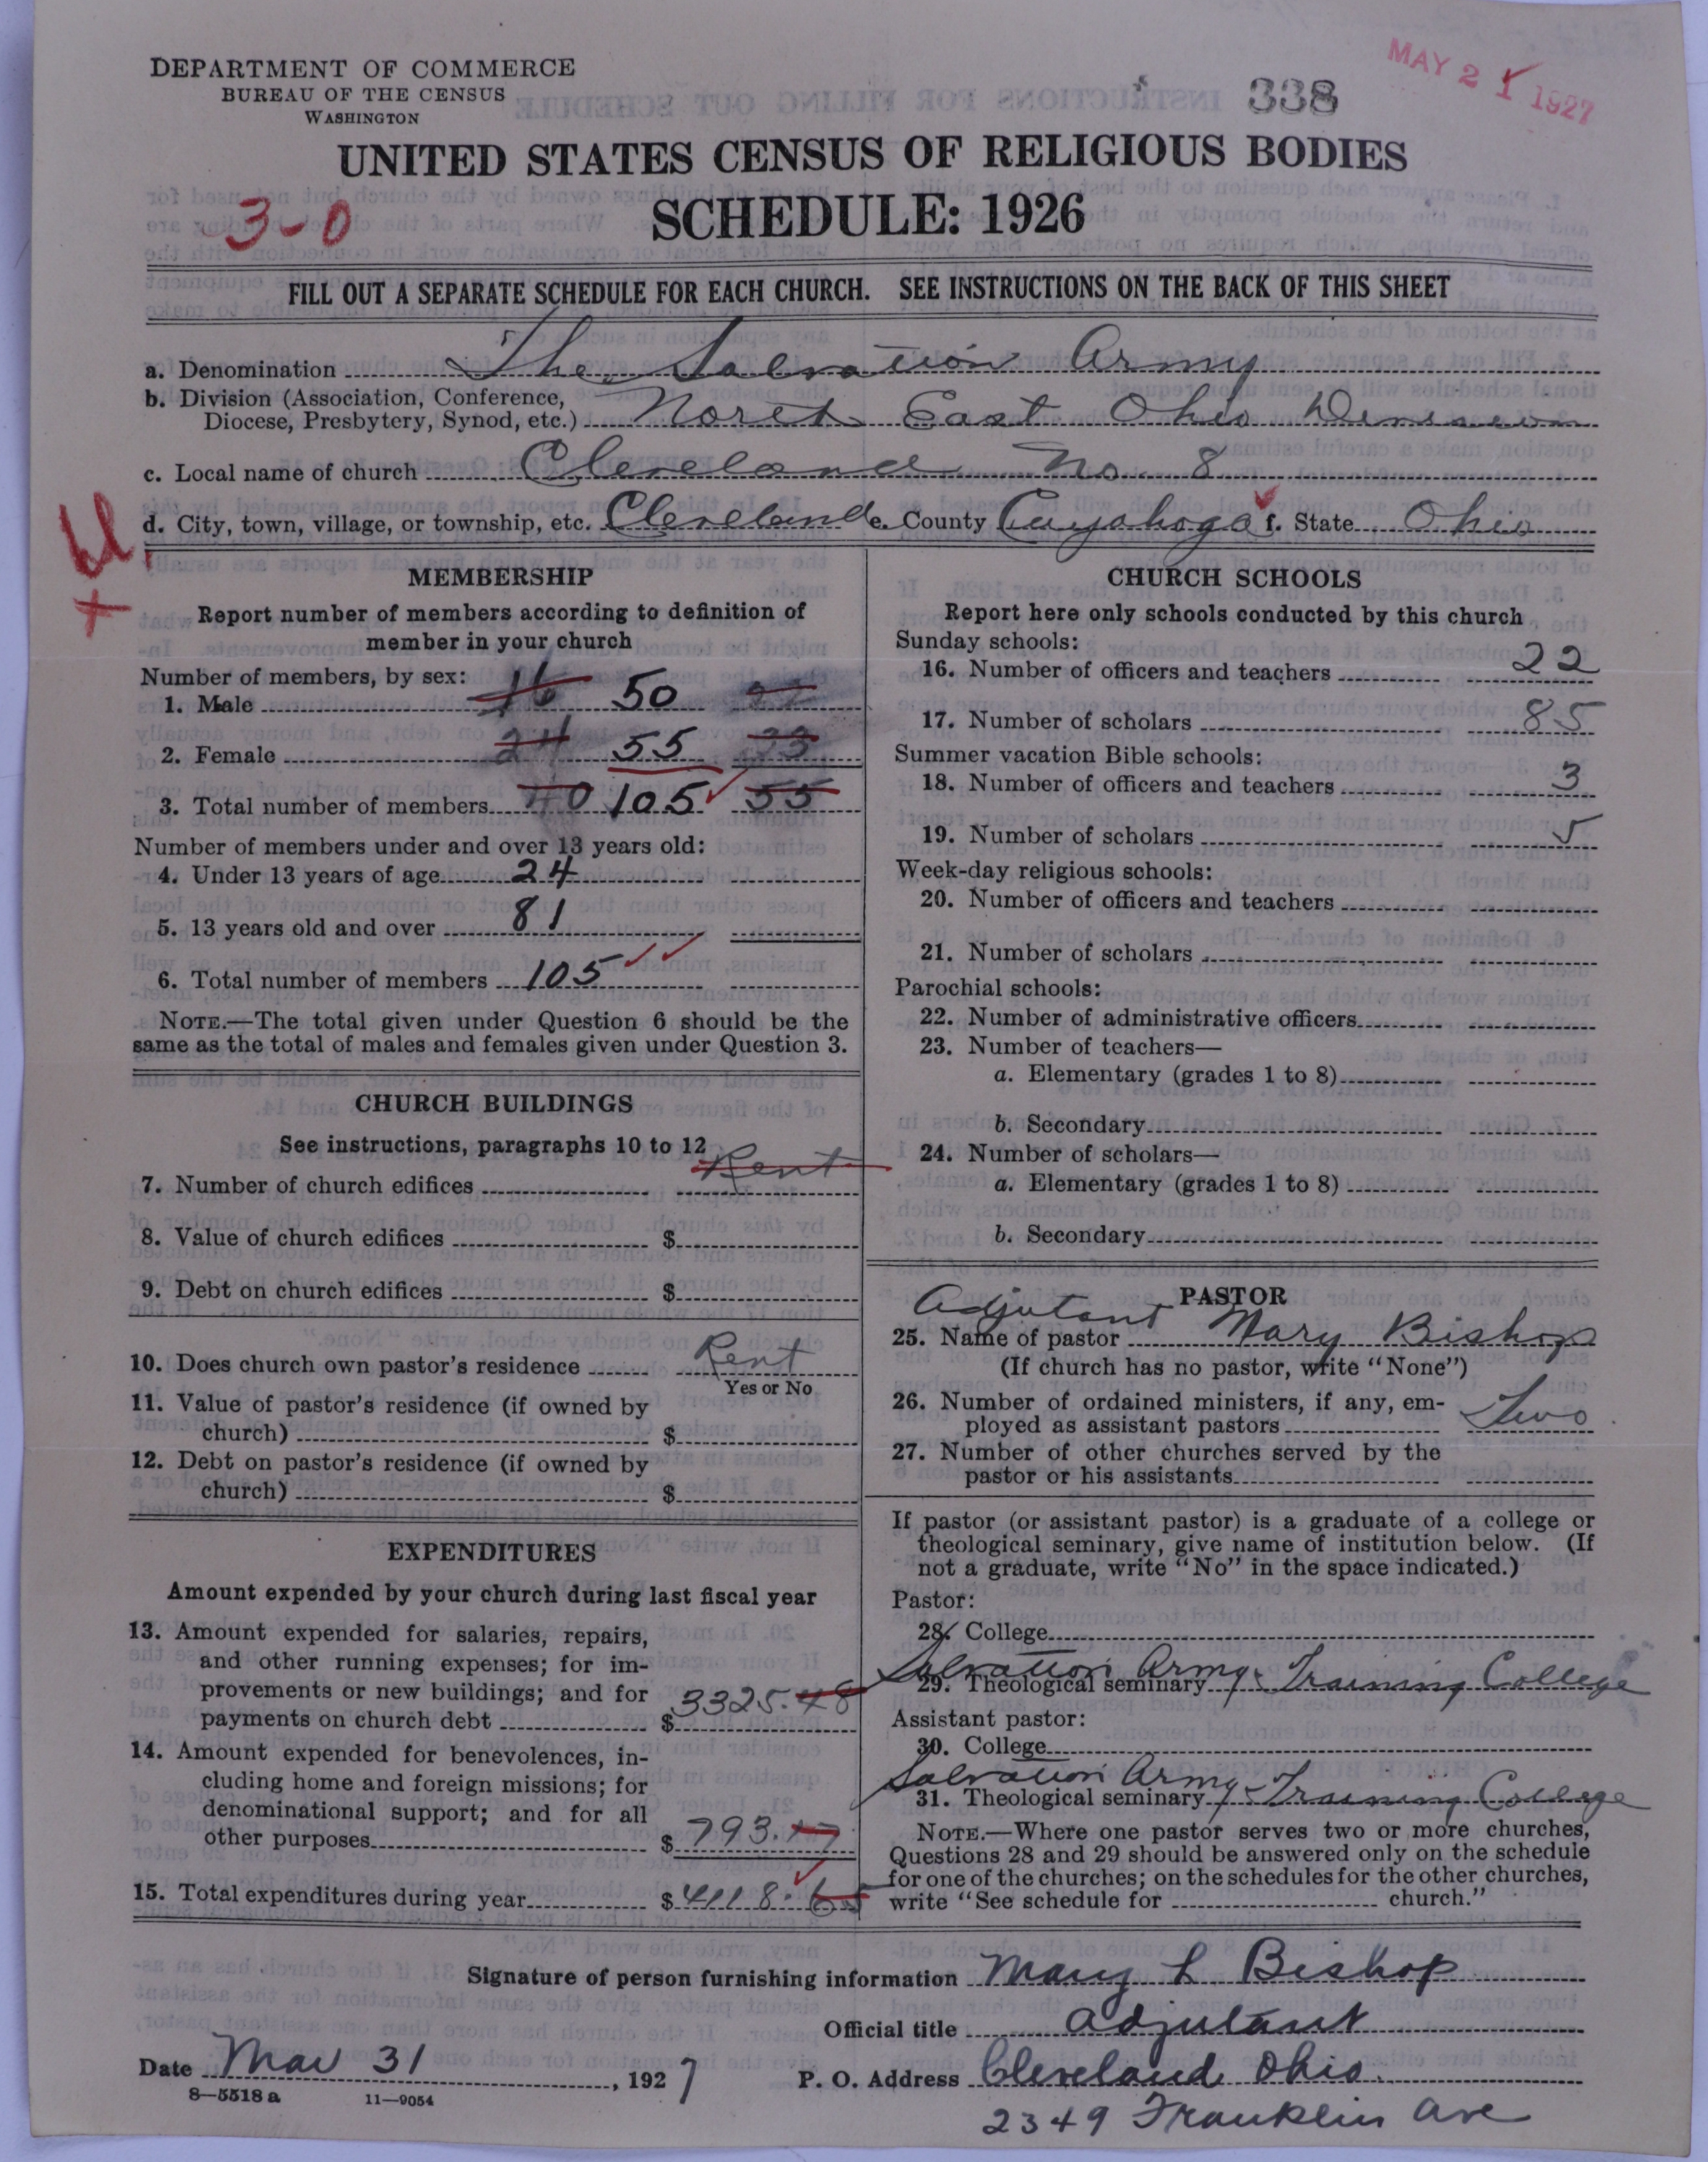 DEPARTMENT OF COMMERCE
BUREAU OF THE CENSUS
WASHINGTON
338
MAY 21 1927
UNITED STATES CENSUS OF RELIGIOUS BODIES
3-0
SCHEDULE: 1926
FILL OUT A SEPARATE SCHEDULE FOR EACH CHURCH. SEE INSTRUCTIONS ON THE BACK OF THIS SHEET
a. Denomination The Salvation Army
b. Division (Association, Conference,
Diocese, Presbytery, Synod, etc.) North East Ohio Division
c. Local name of church Cleveland No. 8
d. City, town, village, or township, etc. Cleveland e. County Cuyahoga f. State Ohio
MEMBERSHIP
Report number of members according to definition of
member in your church
Number of members, by sex:
1. Male 16 50
2. Female 24 55 33
3. Total number of members 40 105 55
Number of members under and over 13 years old:
4. Under 13 years of age 24
5. 13 years old and over 81
6. Total number of members 105
NOTE.—The total given under Question 6 should be the
same as the total of males and females given under Question 3.
CHURCH BUILDINGS
See instructions, paragraphs 10 to 12
Rent
7. Number of church edifices
8. Value of church edifices $
9. Debt on church edifices $
10. Does church own pastor's residence Rent
Yes or No
11. Value of pastor's residence (if owned by
church) $
12. Debt on pastor's residence (if owned by
church) $
EXPENDITURES
Amount expended by your church during last fiscal year
13. Amount expended for salaries, repairs,
and other running expenses; for im-
provements or new buildings; and for
payments on church debt $ 3325.48
14. Amount expended for benevolences, in-
cluding home and foreign missions; for
denominational support; and for all
other purposes $ 793.17
15. Total expenditures during year $ 4118.65
CHURCH SCHOOLS
Report here only schools conducted by this church
Sunday schools:
16. Number of officers and teachers 22
17. Number of scholars 85
Summer vacation Bible schools:
18. Number of officers and teachers 3
19. Number of scholars 5
Week-day religious schools:
20. Number of officers and teachers
21. Number of scholars
Parochial schools:
22. Number of administrative officers
23. Number of teachers—
a. Elementary (grades 1 to 8)
b. Secondary
24. Number of scholars—
a. Elementary (grades 1 to 8)
b. Secondary
PASTOR
25. Name of pastor Adjutant Mary Bishop
(If church has no pastor, write "None")
26. Number of ordained ministers, if any, em-
ployed as assistant pastors Two
27. Number of other churches served by the
pastor or his assistants
If pastor (or assistant pastor) is a graduate of a college or
theological seminary, give name of institution below. (If
not a graduate, write "No" in the space indicated.)
Pastor:
28. College
Salvation Army Training College
29. Theological seminary
Assistant pastor:
30. College
Salvation Army Training College
31. Theological seminary
NOTE.—Where one pastor serves two or more churches,
Questions 28 and 29 should be answered only on the schedule
for one of the churches; on the schedules for the other churches,
write "See schedule for church."
Signature of person furnishing information Mary L Bishop
Official title Adjutant
Date Mar 31, 1927
P. O. Address Cleveland Ohio.
2349 Franklin Ave
8—5518 a 11—9054